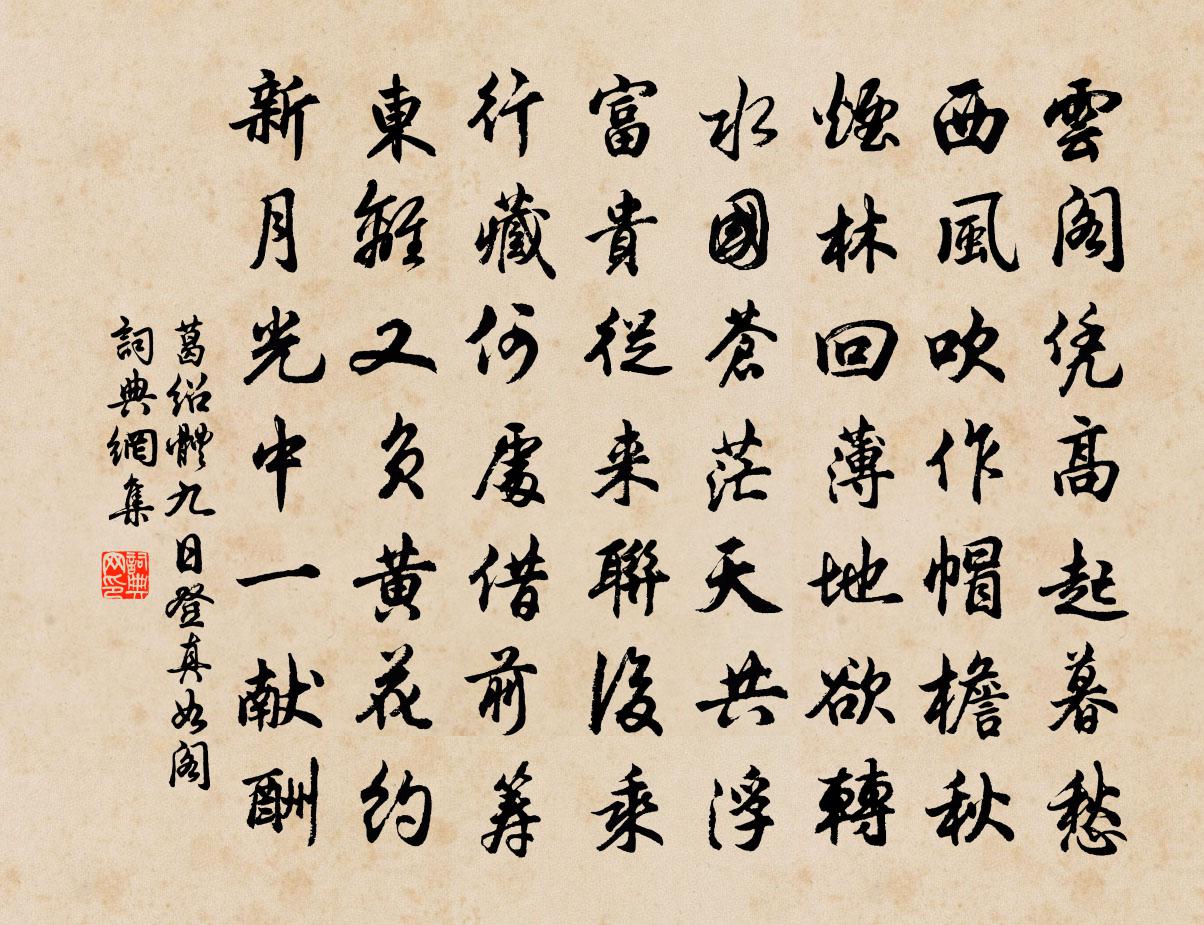 雲閣凭高起暮愁
西風吹作帽檐秋
煙林回薄地欲轉
水國蒼茫天共浮
富貴從来聯後乘
行藏何處借前筹
東離又負黄花約
新月光中一献酬
葛紹體九日登真如閣
詞典網集
詞典网印